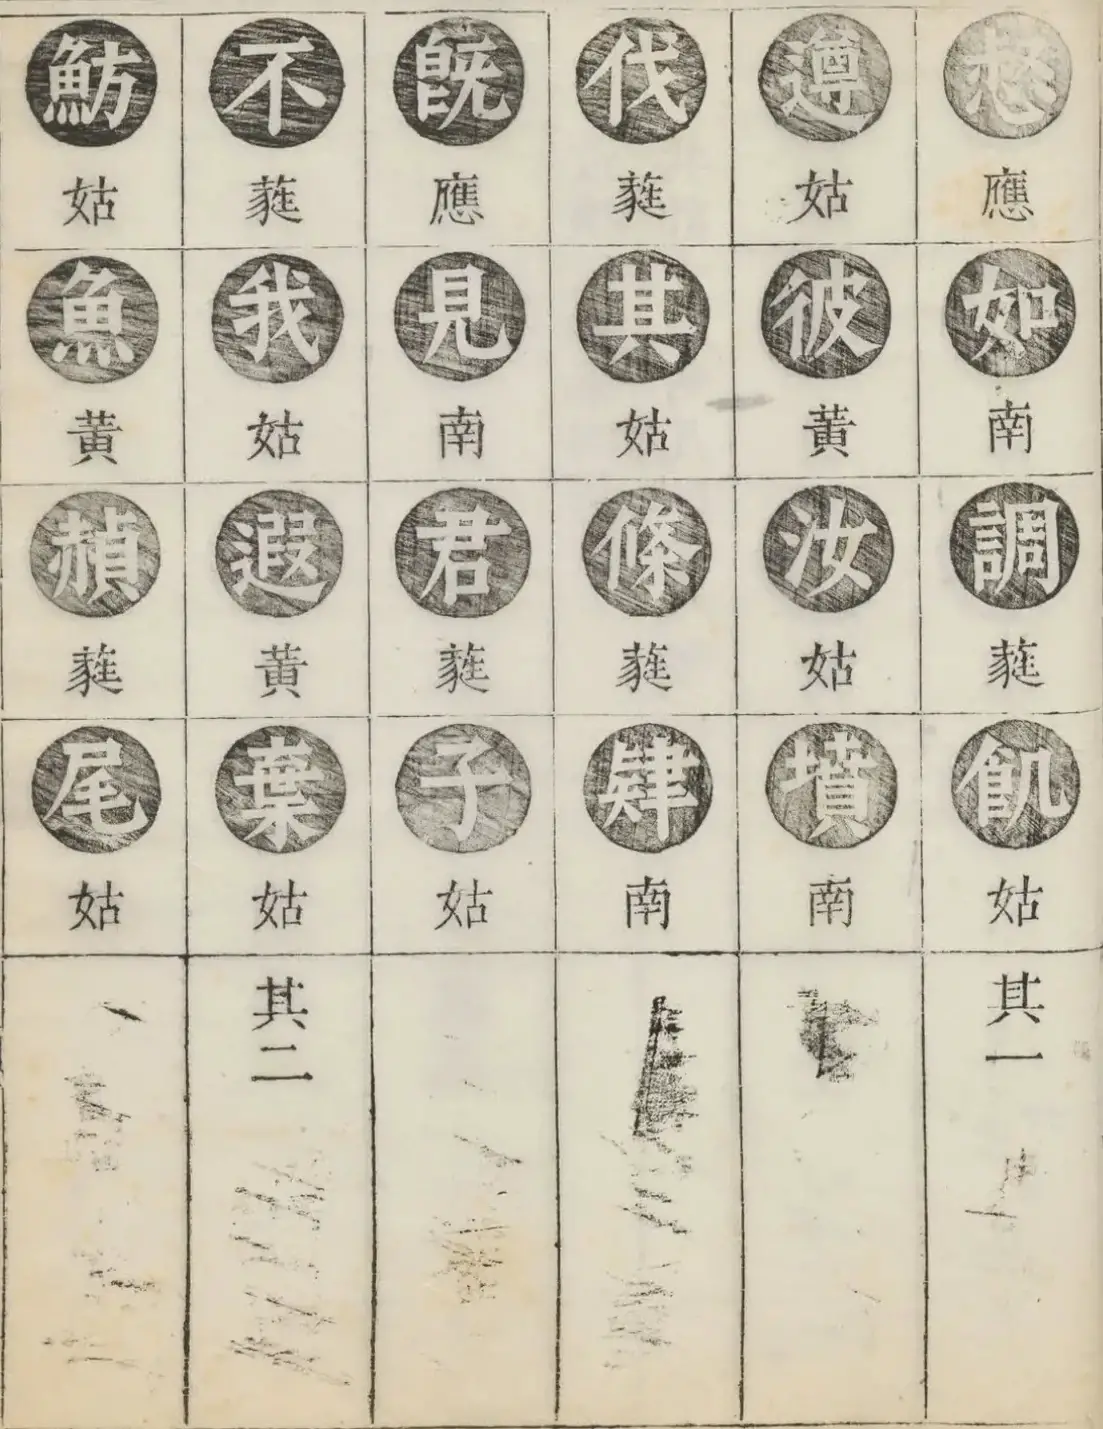 惄應如南調蕤飢姑其一
遵姑彼黄汝姑墳南
伐蕤其姑條蕤肄南
旣應見南君蕤子姑
不蕤我姑遐黄棄姑其二
魴姑魚黄赬蕤尾姑